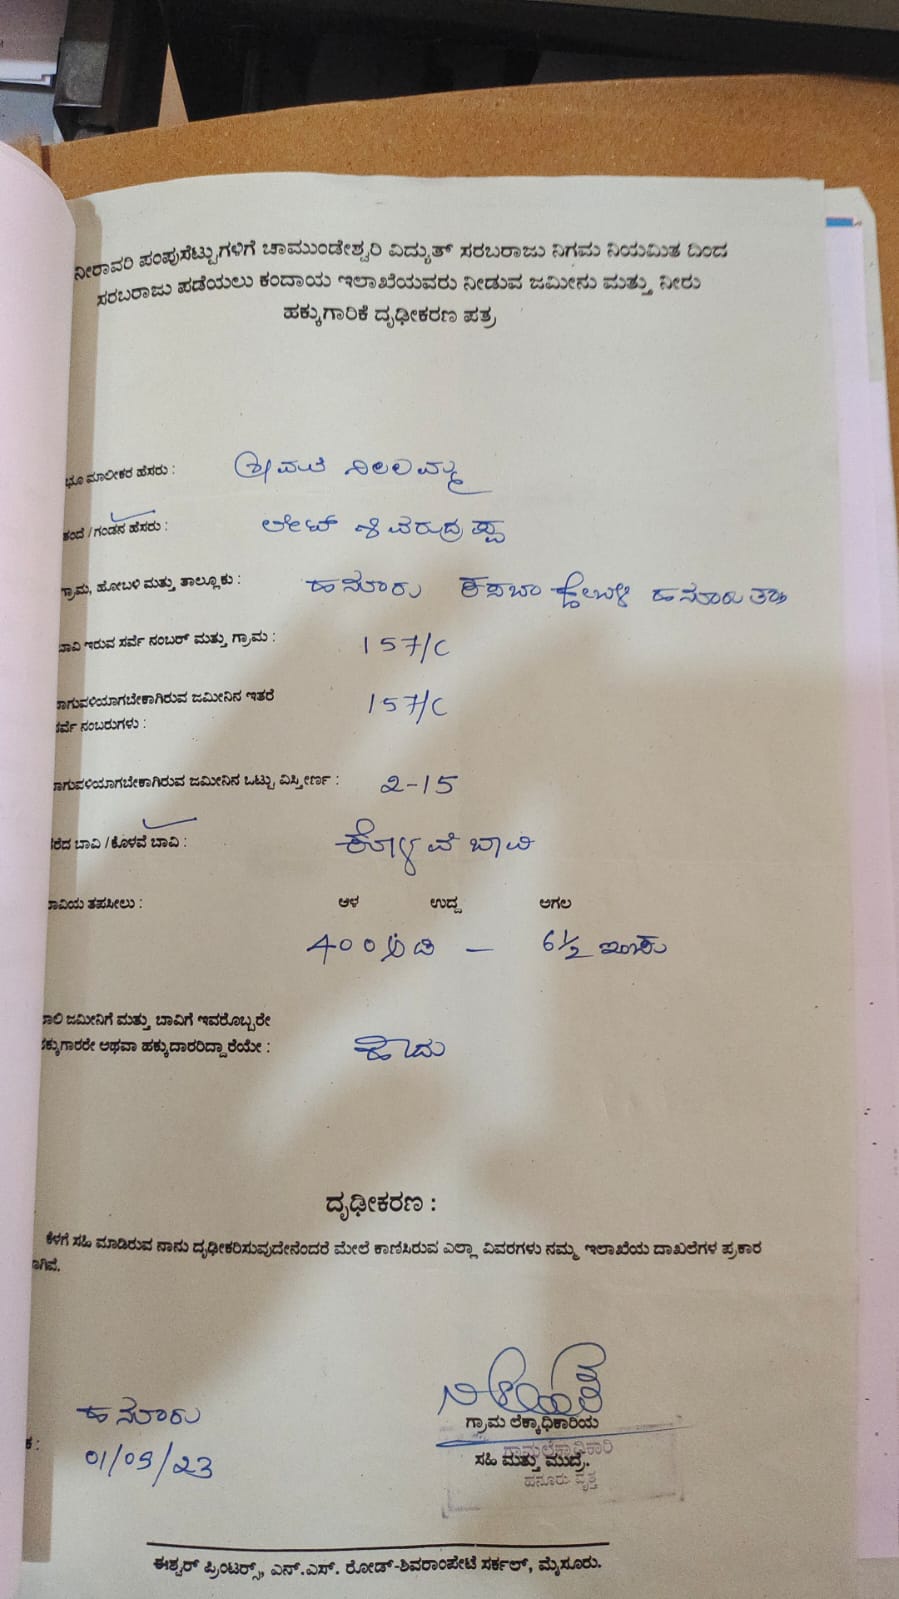 ನೀರಾವರಿ ಪಂಪುಸೆಟ್ಟುಗಳಿಗೆ ಚಾಮುಂಡೇಶ್ವರಿ ವಿದ್ಯುತ್ ಸರಬರಾಜು ನಿಗಮ ನಿಯಮಿತ ದಿಂದ
ಸರಬರಾಜು ಪಡೆಯಲು ಕಂದಾಯ ಇಲಾಖೆಯವರು ನೀಡುವ ಜಮೀನು ಮತ್ತು ನೀರು
ಹಕ್ಕುಗಾರಿಕೆ ದೃಢೀಕರಣ ಪತ್ರ
ಭೂ ಮಾಲೀಕರ ಹೆಸರು : ಶ್ರೀಮತಿ ನೀಲಮ್ಮ
ತಂದೆ / ಗಂಡನ ಹೆಸರು : ಲೇಟ್ ಶಿವರುದ್ರಪ್ಪ
ಗ್ರಾಮ, ಹೋಬಳಿ ಮತ್ತು ತಾಲ್ಲೂಕು : ಹನೂರು ಕಸಬಾ ಹೋಬಳಿ ಹನೂರು ತಾ||
ಬಾವಿ ಇರುವ ಸರ್ವೆ ನಂಬರ್ ಮತ್ತು ಗ್ರಾಮ : 157/C
ಸಾಗುವಳಿಯಾಗಬೇಕಾಗಿರುವ ಜಮೀನಿನ ಇತರೆ 157/C
ಸರ್ವೆ ನಂಬರುಗಳು :
ಸಾಗುವಳಿಯಾಗಬೇಕಾಗಿರುವ ಜಮೀನಿನ ಒಟ್ಟು ವಿಸ್ತೀರ್ಣ : 2-15
ತೆರೆದ ಬಾವಿ / ಕೊಳವೆ ಬಾವಿ : ಕೊಳವೆ ಬಾವಿ
ಬಾವಿಯ ತಪಸೀಲು : ಆಳ ಉದ್ದ ಅಗಲ
400 ಅಡಿ — 6½ ಇಂಚು
ಖಾಲಿ ಜಮೀನಿಗೆ ಮತ್ತು ಬಾವಿಗೆ ಇವರೊಬ್ಬರೇ
ಹಕ್ಕುಗಾರರೇ ಅಥವಾ ಹಕ್ಕುದಾರರಿದ್ದಾರೆಯೇ : ಹೌದು
ದೃಢೀಕರಣ :
ಕೆಳಗೆ ಸಹಿ ಮಾಡಿರುವ ನಾನು ದೃಢೀಕರಿಸುವುದೇನೆಂದರೆ ಮೇಲೆ ಕಾಣಿಸಿರುವ ಎಲ್ಲಾ ವಿವರಗಳು ನಮ್ಮ ಇಲಾಖೆಯ ದಾಖಲೆಗಳ ಪ್ರಕಾರ
ಹನೂರು
01/09/23
ಗ್ರಾಮ ಲೆಕ್ಕಾಧಿಕಾರಿಯ
ಗ್ರಾಮಲೆಕ್ಕಾಧಿಕಾರಿ
ಸಹಿ ಮತ್ತು ಮುದ್ರೆ.
ಹನೂರು ವೃತ್ತ
ಈಶ್ವರ್ ಪ್ರಿಂಟರ್ಸ್, ಎನ್.ಎಸ್. ರೋಡ್-ಶಿವರಾಂಪೇಟೆ ಸರ್ಕಲ್, ಮೈಸೂರು.